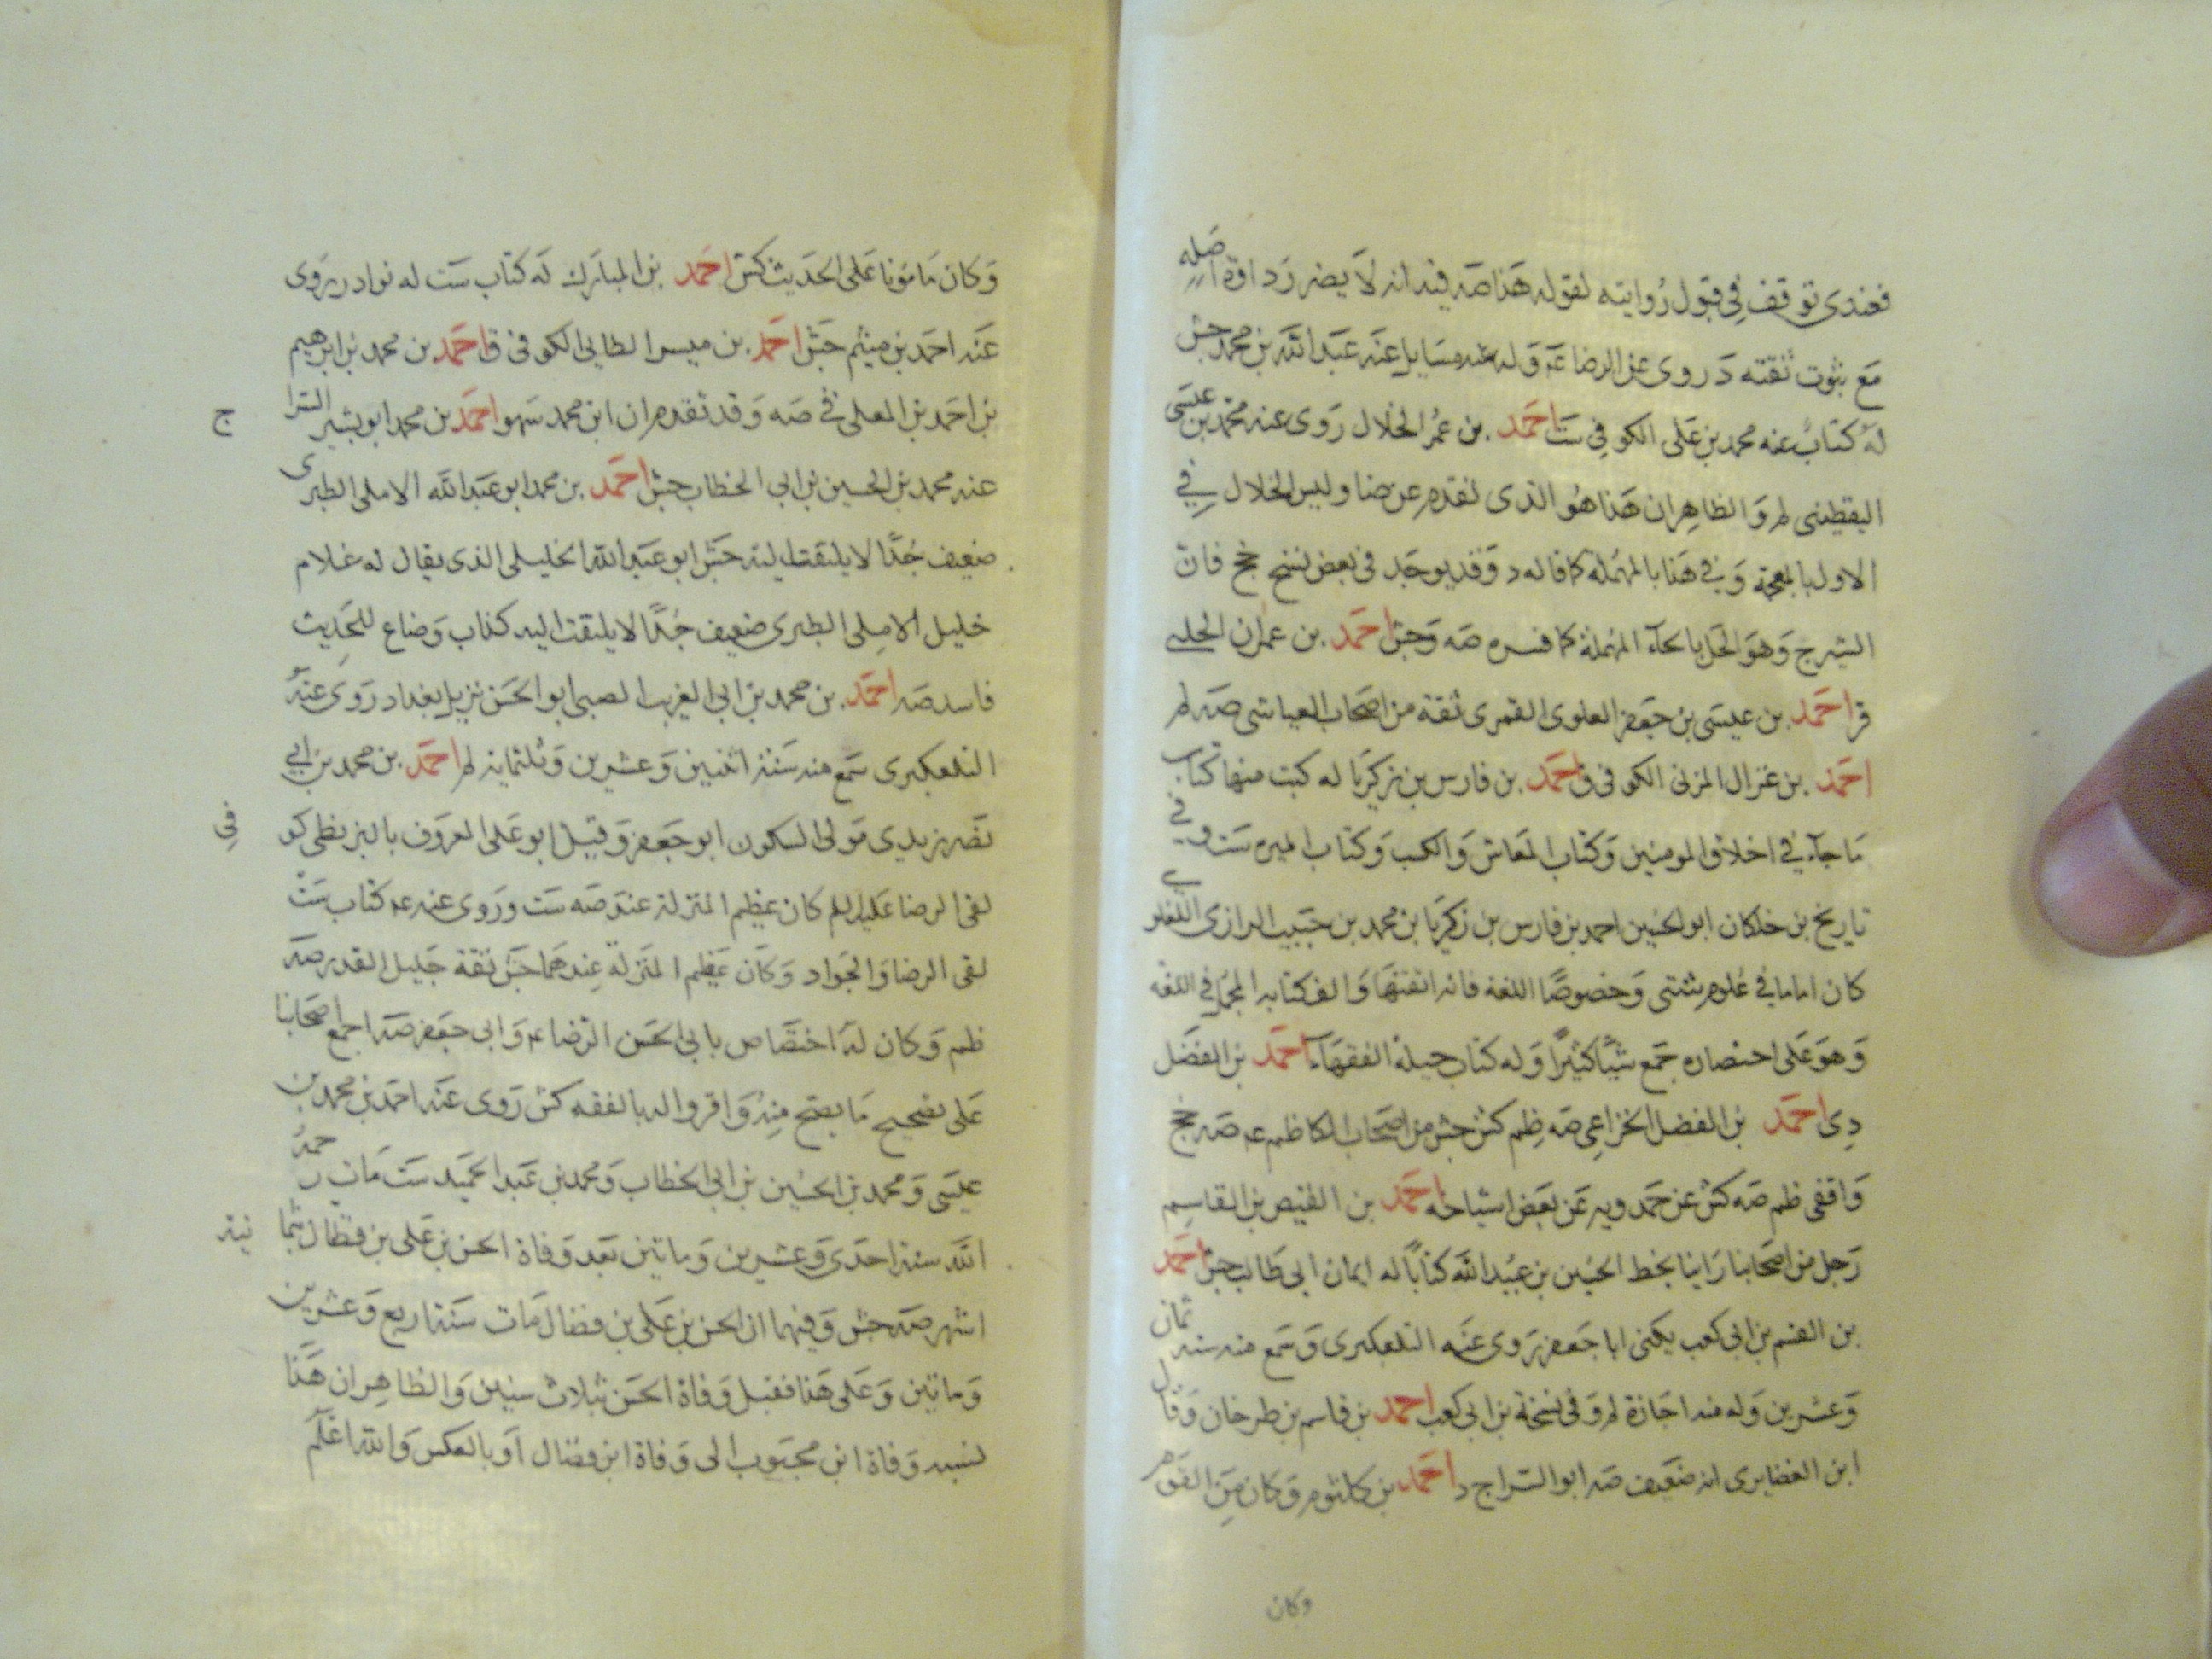 فعندى توقف فى قبول روايته لقوله هذا صه فيه انه لا يضر رداوة اصله
مع ثبوت ثقته د روى عن الرضا عم وله عنه مسايل عنه عبد الله بن محمد جش
له كتاب عنه محمد بن على الكوفى ست احمد بن عمر الخلال روى عنه محمد بن عيسى
اليقطينى لم والظاهر ان هذا هو الذى تقدم عن ضا وليس الخلال فى
الاول بالمعجمة وفى هذا بالمهملة كما قاله د وقد يوجد فى بعض نسخ جخ فان
الشيرج وهو الحل بالحاء المهملة كما فسره صه وجش احمد بن عمران الحلبى
قر احمد بن عيسى بن جعفر العلوى القمرى ثقة من اصحاب العياشى صه لم
احمد بن غزال المزنى الكوفى ق احمد بن فارس بن زكريا له كتب منها كتاب
ما جآء فى اخلاق المومنين وكتاب المعاش والكسب وكتاب الميره ست وفى
تاريخ بن خلكان ابو الحسين احمد بن فارس بن زكريا بن محمد بن حبيب الرازى اللغوى
كان اماما فى علوم شتى وخصوصًا اللغة فانه اتقنها والف كتابه المجمل فى اللغة
وهو على اختصاره جمع شيئًا كثيرًا وله كتاب حيلة الفقهآء احمد بن الفضل
دى احمد بن الفضل الخزاعى صه ظم كش جش من اصحاب الكاظم عم صه جخ
واقفى ظم صه كش عن حمدويه عن بعض اشياخه احمد بن الفيض بن القاسم
رجل من اصحابنا راينا بخط الحسين بن عبيد الله كتابًا له ايمان ابى طالب جش احمد
بن القسم بن ابى كعب يكنى ابا جعفر روى عنه التلعكبرى وسمع منه سنه ثمان
وعشرين وله منه اجازة لم وفى نسخة بن ابى كعب احمد بن قاسم بن طرخان وقال
ابن الغضايرى انه ضعيف صه ابو السراج د احمد بن كلثوم وكان من القوم
وكان
وكان مامونا على الحديث كش احمد بن المبارك له كتاب ست له نوادر يروى
عنه احمد بن ميثم جش احمد بن ميسر الطايى الكوفى ق احمد بن محمد بن ابرهيم
بن احمد بن المعلى فى صه وقد تقدم ان ابن محمد سهو احمد بن محمد ابو بشير السرا ج
عنه محمد بن الحسين بن ابى الخطاب جش احمد بن محمد ابو عبد الله الاملى الطبرى
ضعيف جدًا لا يلتفت اليه جش ابو عبد الله الخليلى الذى يقال له غلام
خليل الاملى الطبرى ضعيف جدًا لا يلتفت اليه كذاب وضاع للحديث
فاسد صه احمد بن محمد بن ابى الغريب الضبى ابو الحسن نزيل بغداد روى عنه
التلعكبرى سمع منه سنة اثنين وعشرين وثلثمايه لم احمد بن محمد بن ابى
نضر زيدى مولى السكون ابو جعفر وقيل ابو على المعروف بالبزنطى كو فى
لقى الرضا عليه السلام كان عظيم المنزلة عنده صه ست وروى عنه عم كتاب ست
لقى الرضا والجواد وكان عظيم المنزلة عندهما جش ثقة جليل القدر صه
ظم وكان له اختصاص بابى الحسن الرضا عم وابى جعفر صه اجمع اصحابنا
على تصحيح ما يصح منه واقروا له بالفقه كش روى عنه احمد بن محمد بن
عيسى ومحمد بن الحسين بن ابى الخطاب ومحمد بن عبد الحميد ست مات رحمه
الله سنة احدى وعشرين وماتين بعد وفاة الحسن بن على بن فضال بثما نية
اشهر صه جش وفيهما ان الحسن بن على بن فضال مات سنة اربع وعشرين
وماتين وعلى هذا فقبل وفاة الحسن بثلاث سنين والظاهر ان هذا
نسبه وفاة ابن محبوب الى وفاة ابن فضال او بالعكس والله اعلم